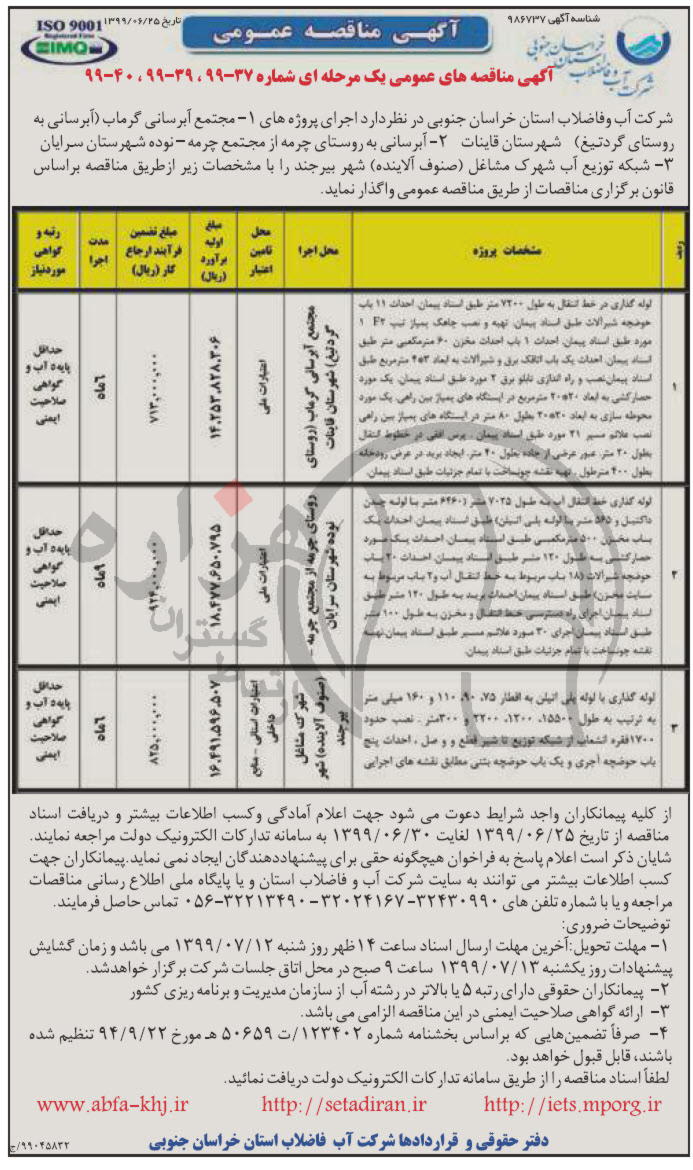 شناسه آگهی ۹۸۶۷۳۷
آگهـی مناقصـه عمومـی
تاریخ ۱۳۹۹/۰۶/۲۵
ISO 9001
Registered Firm
IMQ
شرکت آب و فاضلاب استان خراسان جنوبی
آگهی مناقصه های عمومی یک مرحله ای شماره ۳۷-۹۹ ، ۳۹-۹۹ ، ۴۰-۹۹
شرکت آب وفاضلاب استان خراسان جنوبی در نظردارد اجرای پروژه های ۱- مجتمع آبرسانی گرماب (آبرسانی به
روستای گردتـیغ) شهـرستان قاینات ۲- آبرسانی به روستـای چرمه از مجـتمع چرمه – نوده شهـرستان سرایان
۳- شبکه توزیع آب شهرک مشاغل (صنوف آلاینده) شهر بیرجند را با مشخصات زیر ازطریق مناقصه براساس
قانون برگزاری مناقصات از طریق مناقصه عمومی واگذار نماید.
ردیف
مشخصات پروژه
محل اجرا
محل تامین اعتبار
مبلغ اولیه برآورد (ریال)
مبلغ تضمین فرآیند ارجاع کار (ریال)
مدت اجرا
رتبه و گواهی موردنیاز
۱
لوله گذاری در خط انتقال به طول ۷۲۰۰ متر طبق اسناد پیمان. احداث ۱۱ باب
حوضچه شیرآلات طبق اسناد پیمان. تهیه و نصب چاهک پمپاژ تیپ F۲ ۱
مورد طبق اسناد پیمان. احداث ۱ باب احداث مخزن ۶۰ مترمکعبی متر طبق
اسناد پیمان. احداث یک باب اتاقک برق و شیرآلات به ابعاد ۳*۴ مترمربع طبق
اسناد پیمان‌نصب و راه اندازی تابلو برق ۲ مورد طبق اسناد پیمان. یک مورد
حصارکشی به ابعاد ۲۰*۲۰ مترمربع در ایستگاه های پمپاژ بین راهی. یک مورد
محوطه سازی به ابعاد ۲۰*۲۰ بطول ۸۰ متر در ایستگاه های پمپاژ بین راهی
نصب علائم مسیر ۲۱ مورد طبق اسناد پیمان . پرس افقی در خطوط انتقال
بطول ۲۰ متر. عبور عرضی از جاده بطول ۴۰ متر. ایجاد برید در عرض رودخانه
بطول ۴۰۰ مترطول . تهیه نقشه چونساخت با تمام جزئیات طبق اسناد پیمان.
مجتمع آبرسانی گرماب (روستای گردتیغ) شهرستان قاینات
اعتبارات ملی
۱۴,۲۵۳,۸۲۸,۳۰۶
۷۱۳,۰۰۰,۰۰۰
۶ماه
حداقل پایه۵ آب و گواهی صلاحیت ایمنی
۲
لوله گذاری خط انتقال آب به طـول ۷۰۲۵ متـر (۶۴۶۰ متـر بـا لولـه چـدن
داکتیـل و ۵۶۵ متـر بـا لولـه پلـی اتـیلن) طبـق اسـناد پیمـان. احـداث یـک
بـاب مخـزن ۵۰۰ مترمکعبـی طبـق اسـناد پیمـان. احـداث یـک مـورد
حصارکشـی بـه طـول ۱۲۰ متـر طبـق اسـناد پیمـان. احـداث ۲۰ بـاب
حوضچه شیرآلات (۱۸ بـاب مربـوط بـه خـط انتقـال آب و۲ بـاب مربـوط بـه
سایت مخزن) طبق اسناد پیمان.احداث بریـد بـه طـول ۱۲۰ متـر طبـق
اسناد پیمان.اجرای راه دسترسی خـط انتقـال و مخـزن بـه طـول ۱۰۰ متـر
طبـق اسـناد پیمـان.اجـرای ۳۰ مـورد علائـم مسـیر طبـق اسـناد پیمان.تهیـه
نقشه چونساخت با تمام جزئیات طبق اسناد پیمان.
روستای چرمه از مجتمع چرمه – نوده شهرستان سرایان
اعتبارات ملی
۱۸,۴۷۷,۶۵۰,۷۹۵
۹۲۴,۰۰۰,۰۰۰
۹ماه
حداقل پایه۵ آب و گواهی صلاحیت ایمنی
۳
لوله گذاری با لوله پلی اتیلن به اقطار ۷۵، ۹۰، ۱۱۰ و ۱۶۰ میلی متر
به ترتیب به طول ۱۵۵۰۰، ۱۲۰۰، ۲۲۰۰ و ۳۰۰متر . نصب حدود
۱۷۰۰فقره انشعاب از شبکه توزیع تا شیر قطع و وصل ، احداث پنج
باب حوضچه آجری و یک باب حوضچه بتنی مطابق نقشه های اجرایی
شهرک مشاغل (صنوف آلاینده) شهر بیرجند
اعتبارات استانی – منابع داخلی
۱۶,۴۹۱,۵۹۶,۵۰۷
۸۲۵,۰۰۰,۰۰۰
۶ماه
حداقل پایه۵ آب و گواهی صلاحیت ایمنی
هزاره
گستران
ارتباط
از کلیه پیمانکاران واجد شرایط دعوت می شود جهت اعلام آمادگی وکسب اطلاعات بیشتر و دریافت اسناد
مناقصه از تاریخ ۱۳۹۹/۰۶/۲۵ لغایت ۱۳۹۹/۰۶/۳۰ به سامانه تدارکات الکترونیک دولت مراجعه نمایند.
شایان ذکر است اعلام پاسخ به فراخوان هیچگونه حقی برای پیشنهاددهندگان ایجاد نمی نماید.پیمانکاران جهت
کسب اطلاعات بیشتر می توانند به سایت شرکت آب و فاضلاب استان و یا پایگاه ملی اطلاع رسانی مناقصات
مراجعه و یا با شماره تلفن های ۳۲۴۳۰۹۹۰-۳۲۰۲۴۱۶۷-۳۲۲۱۳۴۹۰-۰۵۶ تماس حاصل فرمایند.
توضیحات ضروری:
۱- مهلت تحویل:آخرین مهلت ارسال اسناد ساعت ۱۴ظهر روز شنبه ۱۳۹۹/۰۷/۱۲ می باشد و زمان گشایش
پیشنهادات روز یکشنبه ۱۳۹۹/۰۷/۱۳ ساعت ۹ صبح در محل اتاق جلسات شرکت برگزار خواهدشد.
۲- پیمانکاران حقوقی دارای رتبه ۵ یا بالاتر در رشته آب از سازمان مدیریت و برنامه ریزی کشور
۳- ارائه گواهی صلاحیت ایمنی در این مناقصه الزامی می باشد.
۴- صرفاً تضمین‌هایی که براساس بخشنامه شماره ۱۲۳۴۰۲/ت ۵۰۶۵۹ هـ مورخ ۹۴/۹/۲۲ تنظیم شده
باشند، قابل قبول خواهد بود.
لطفاً اسناد مناقصه را از طریق سامانه تدارکات الکترونیک دولت دریافت نمائید.
www.abfa-khj.ir http://setadiran.ir http://iets.mporg.ir
دفتر حقوقی و قراردادها شرکت آب فاضلاب استان خراسان جنوبی
۹۹۰۴۵۸۳۲/ح